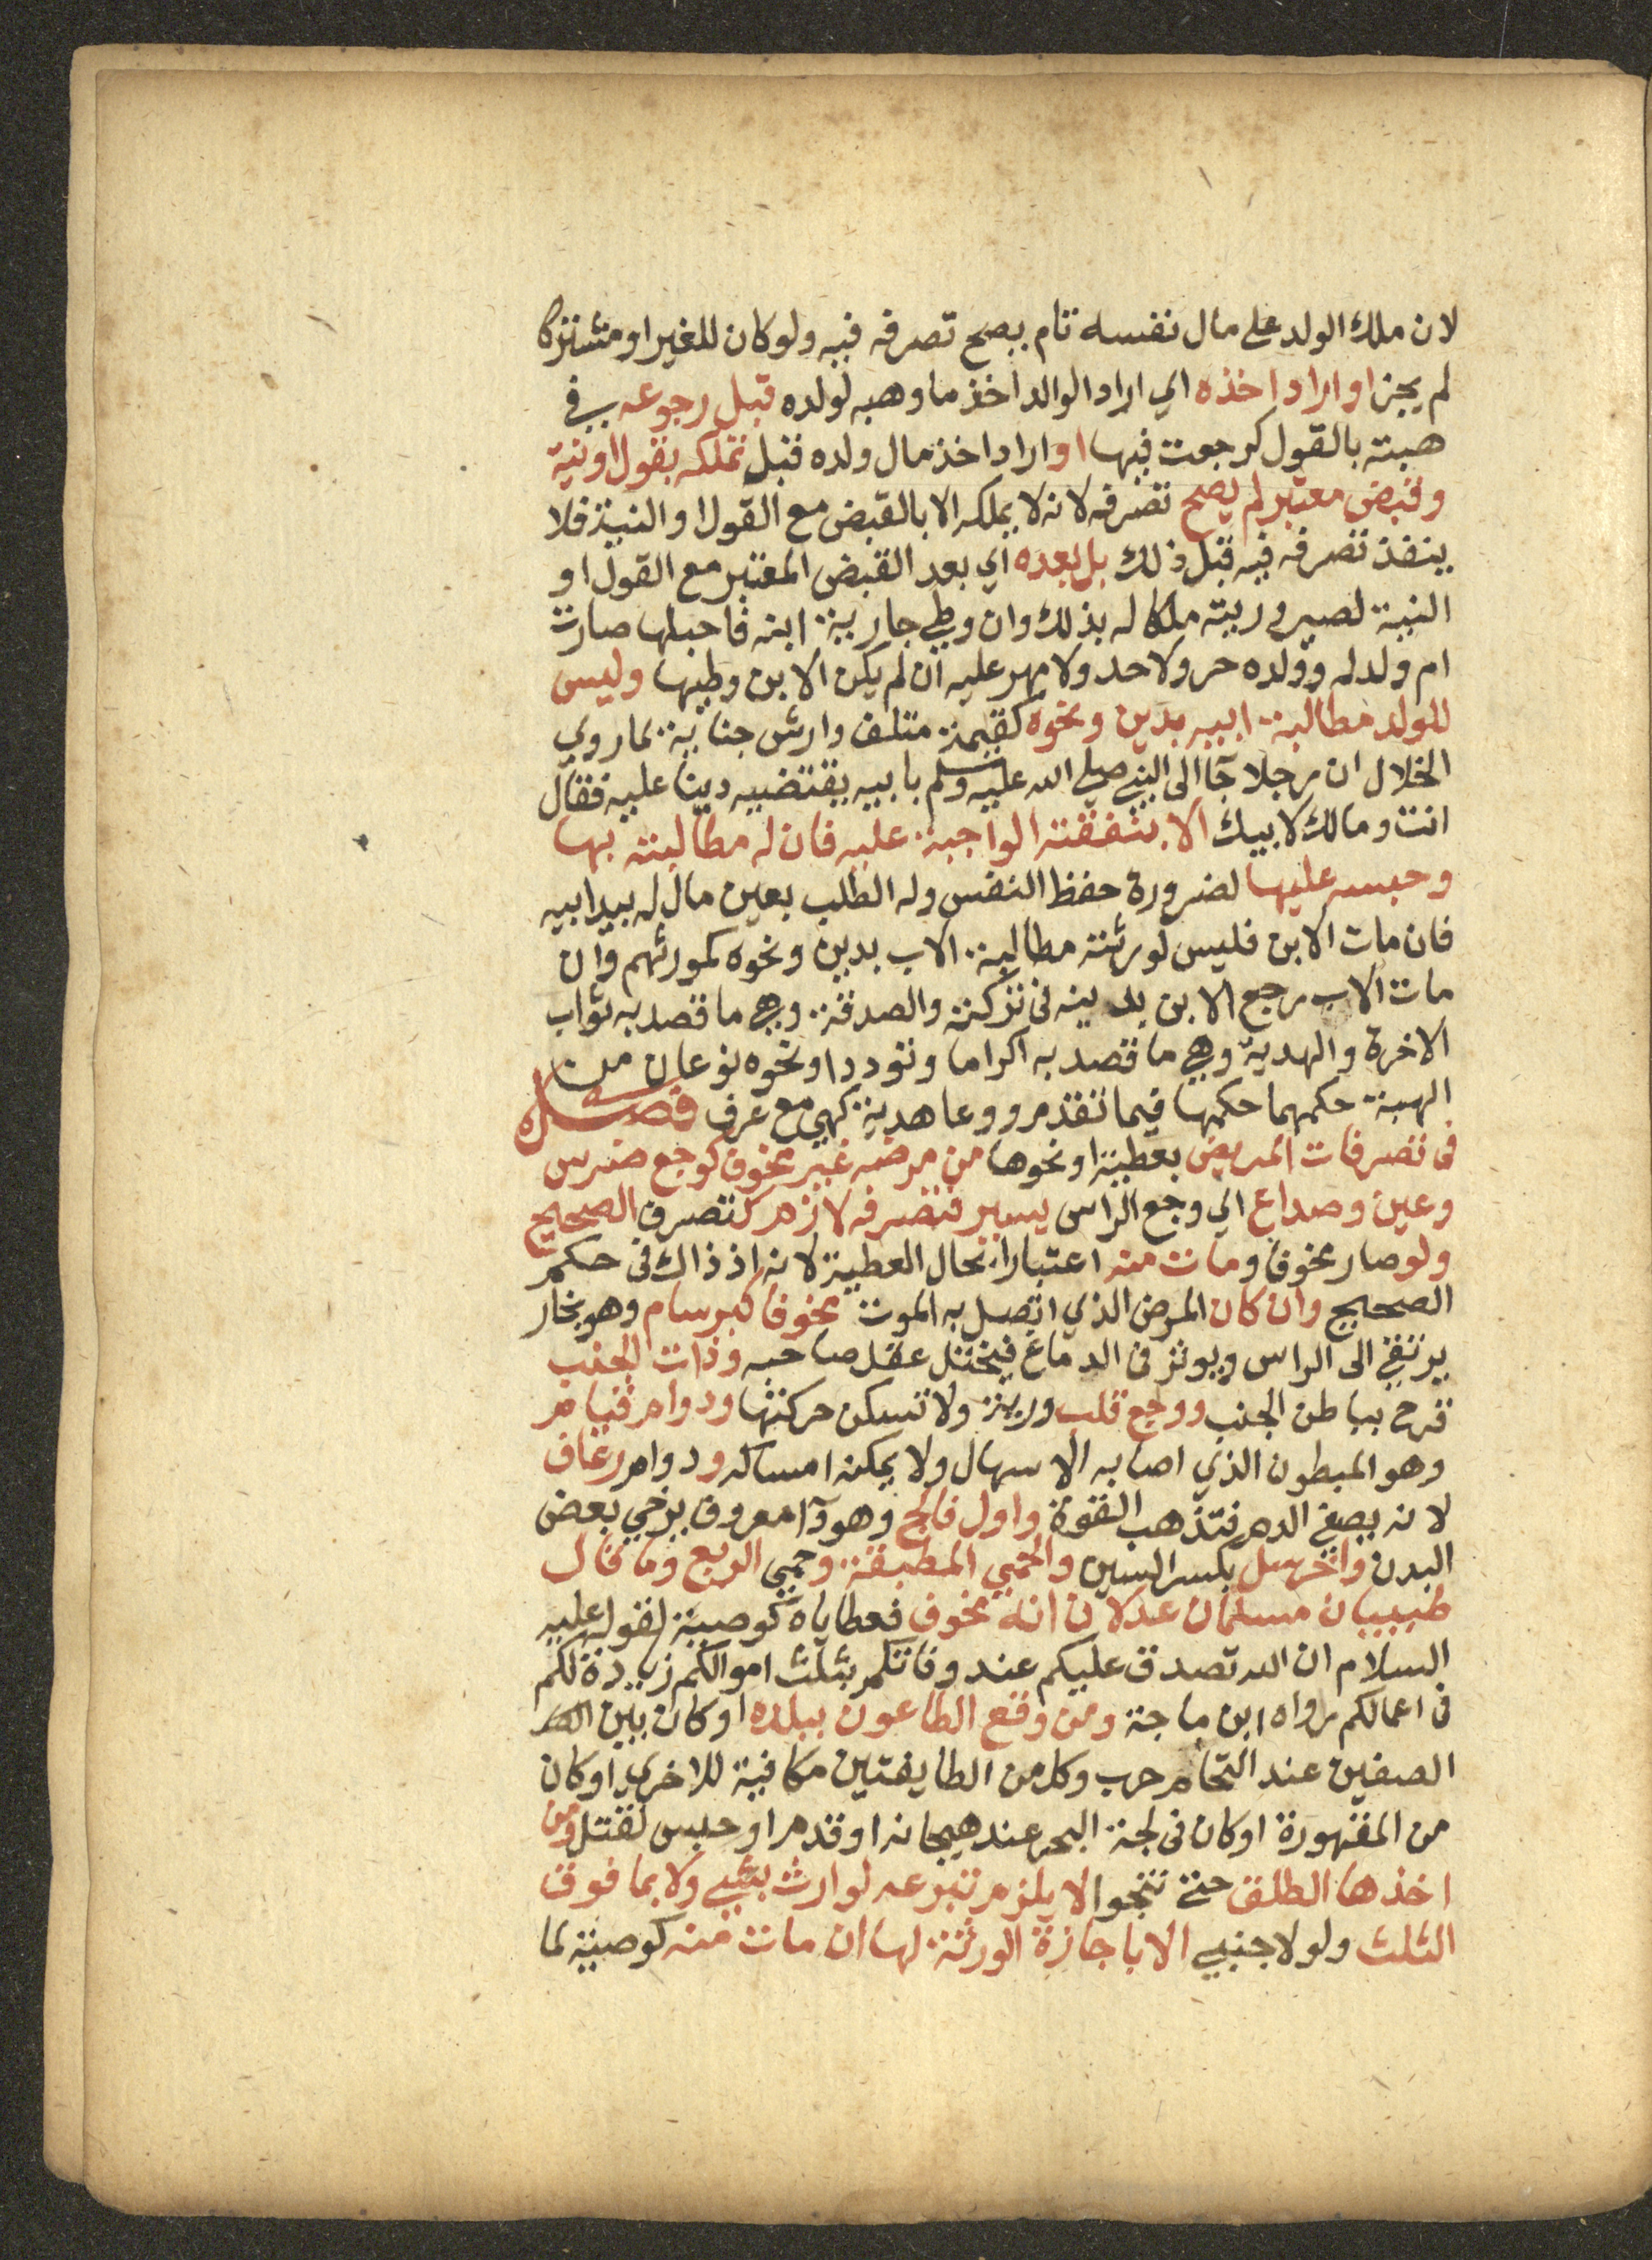 لان ملك الولد على مال نفسه تام يصح تصرفه فيه ولو كان للغير او مشتركا
لم يجز او اراد اخذه اي اراد الوالد اخذ ما وهبه لولده قبل رجوعه في
هبته بالقول كرجعت فيها او اراد اخذ مال ولده قبل تملكه بقول او نية
وقبض معتبر لم يصح تصرفه لانه لا يملكه الا بالقبض مع القول او النية فلا
ينفذ تصرفه فيه قبل ذلك بل بعده اي بعد القبض المعتبر مع القول او
النية لصيرورته ملكا له بذلك وان وطي جارية ابنه فاحبلها صارت
ام ولد له وولده حر ولا حد ولا مهر عليه ان لم يكن الابن وطيها وليس
للولد مطالبة ابيه بدين ونحوه كقيمة متلف وارش جناية لما روي
الخلال ان رجلا جآ الى النبي صلى الله عليه وسلم بابيه يقتضيه دينا عليه فقال
انت ومالك لابيك الا بنفقته الواجبة عليه فان له مطالبته بها
وحبسه عليها لضرورة حفظ النفس وله الطلب بعين مال له بيد ابيه
فان مات الابن فليس لورثته مطالبة الاب بدين ونحوه كمورثهم وان
مات الاب رجع الابن بدينه في تركته والصدقة وهي ما قصد به ثواب
الاخرة والهدية وهي ما قصد به اكراما وتوددا ونحوه نوعان من
الهبة حكمهما حكمها فيما تقدم ووعا هدية كهي مع عرف فصل
في تصرفات المريض بعطية او نحوها من مرضه غير مخوف كوجع ضرس
وعين وصداع اي وجع الراس يسير فتصرفه لازم كتصرف الصحيح
ولو صار مخوفا ومات منه اعتبارا بحال العطية لانه اذ ذاك في حكم
الصحيح وان كان المرض الذي اتصل به الموت مخوفا كبرسام وهو بخار
يرتقي الى الراس ويوثر في الدماغ فيختل عقل صاحبه وذات الجنب
قرح بباطن الجنب ووجع قلب ورية ولا تسكن حركتها ودوام قيام
وهو المبطون الذي اصابه الاسهال ولا يمكنه امساكه ودوام رعاف
لانه يصفي الدم فتذهب القوة واول فالج وهو دآ معروف يرخي بعض
البدن واخر سل بكسر السين والحمي المطبقة وحمي الربع وما قال
طبيبان مسلمان عدلان انه مخوف فعطاياه كوصية لقوله عليه
السلام ان الله تصدق عليكم عند وفاتكم بثلث اموالكم زيادة لكم
في اعمالكم رواه ابن ماجة ومن وقع الطاعون ببلده او كان بين
الصفين عند التحام حرب وكل من الطايفتين مكافية للاخري او كان
من المقهورة او كان في لجة البحر عند هيجانه او قدم او حبس لقتل ومن
اخذها الطلق حتى تنجوا لا يلزم تبرعه لوارث بشيي ولا بما فوق
الثلث ولو لاجنبي الا باجازة الورثة لها ان مات منه كوصية لما